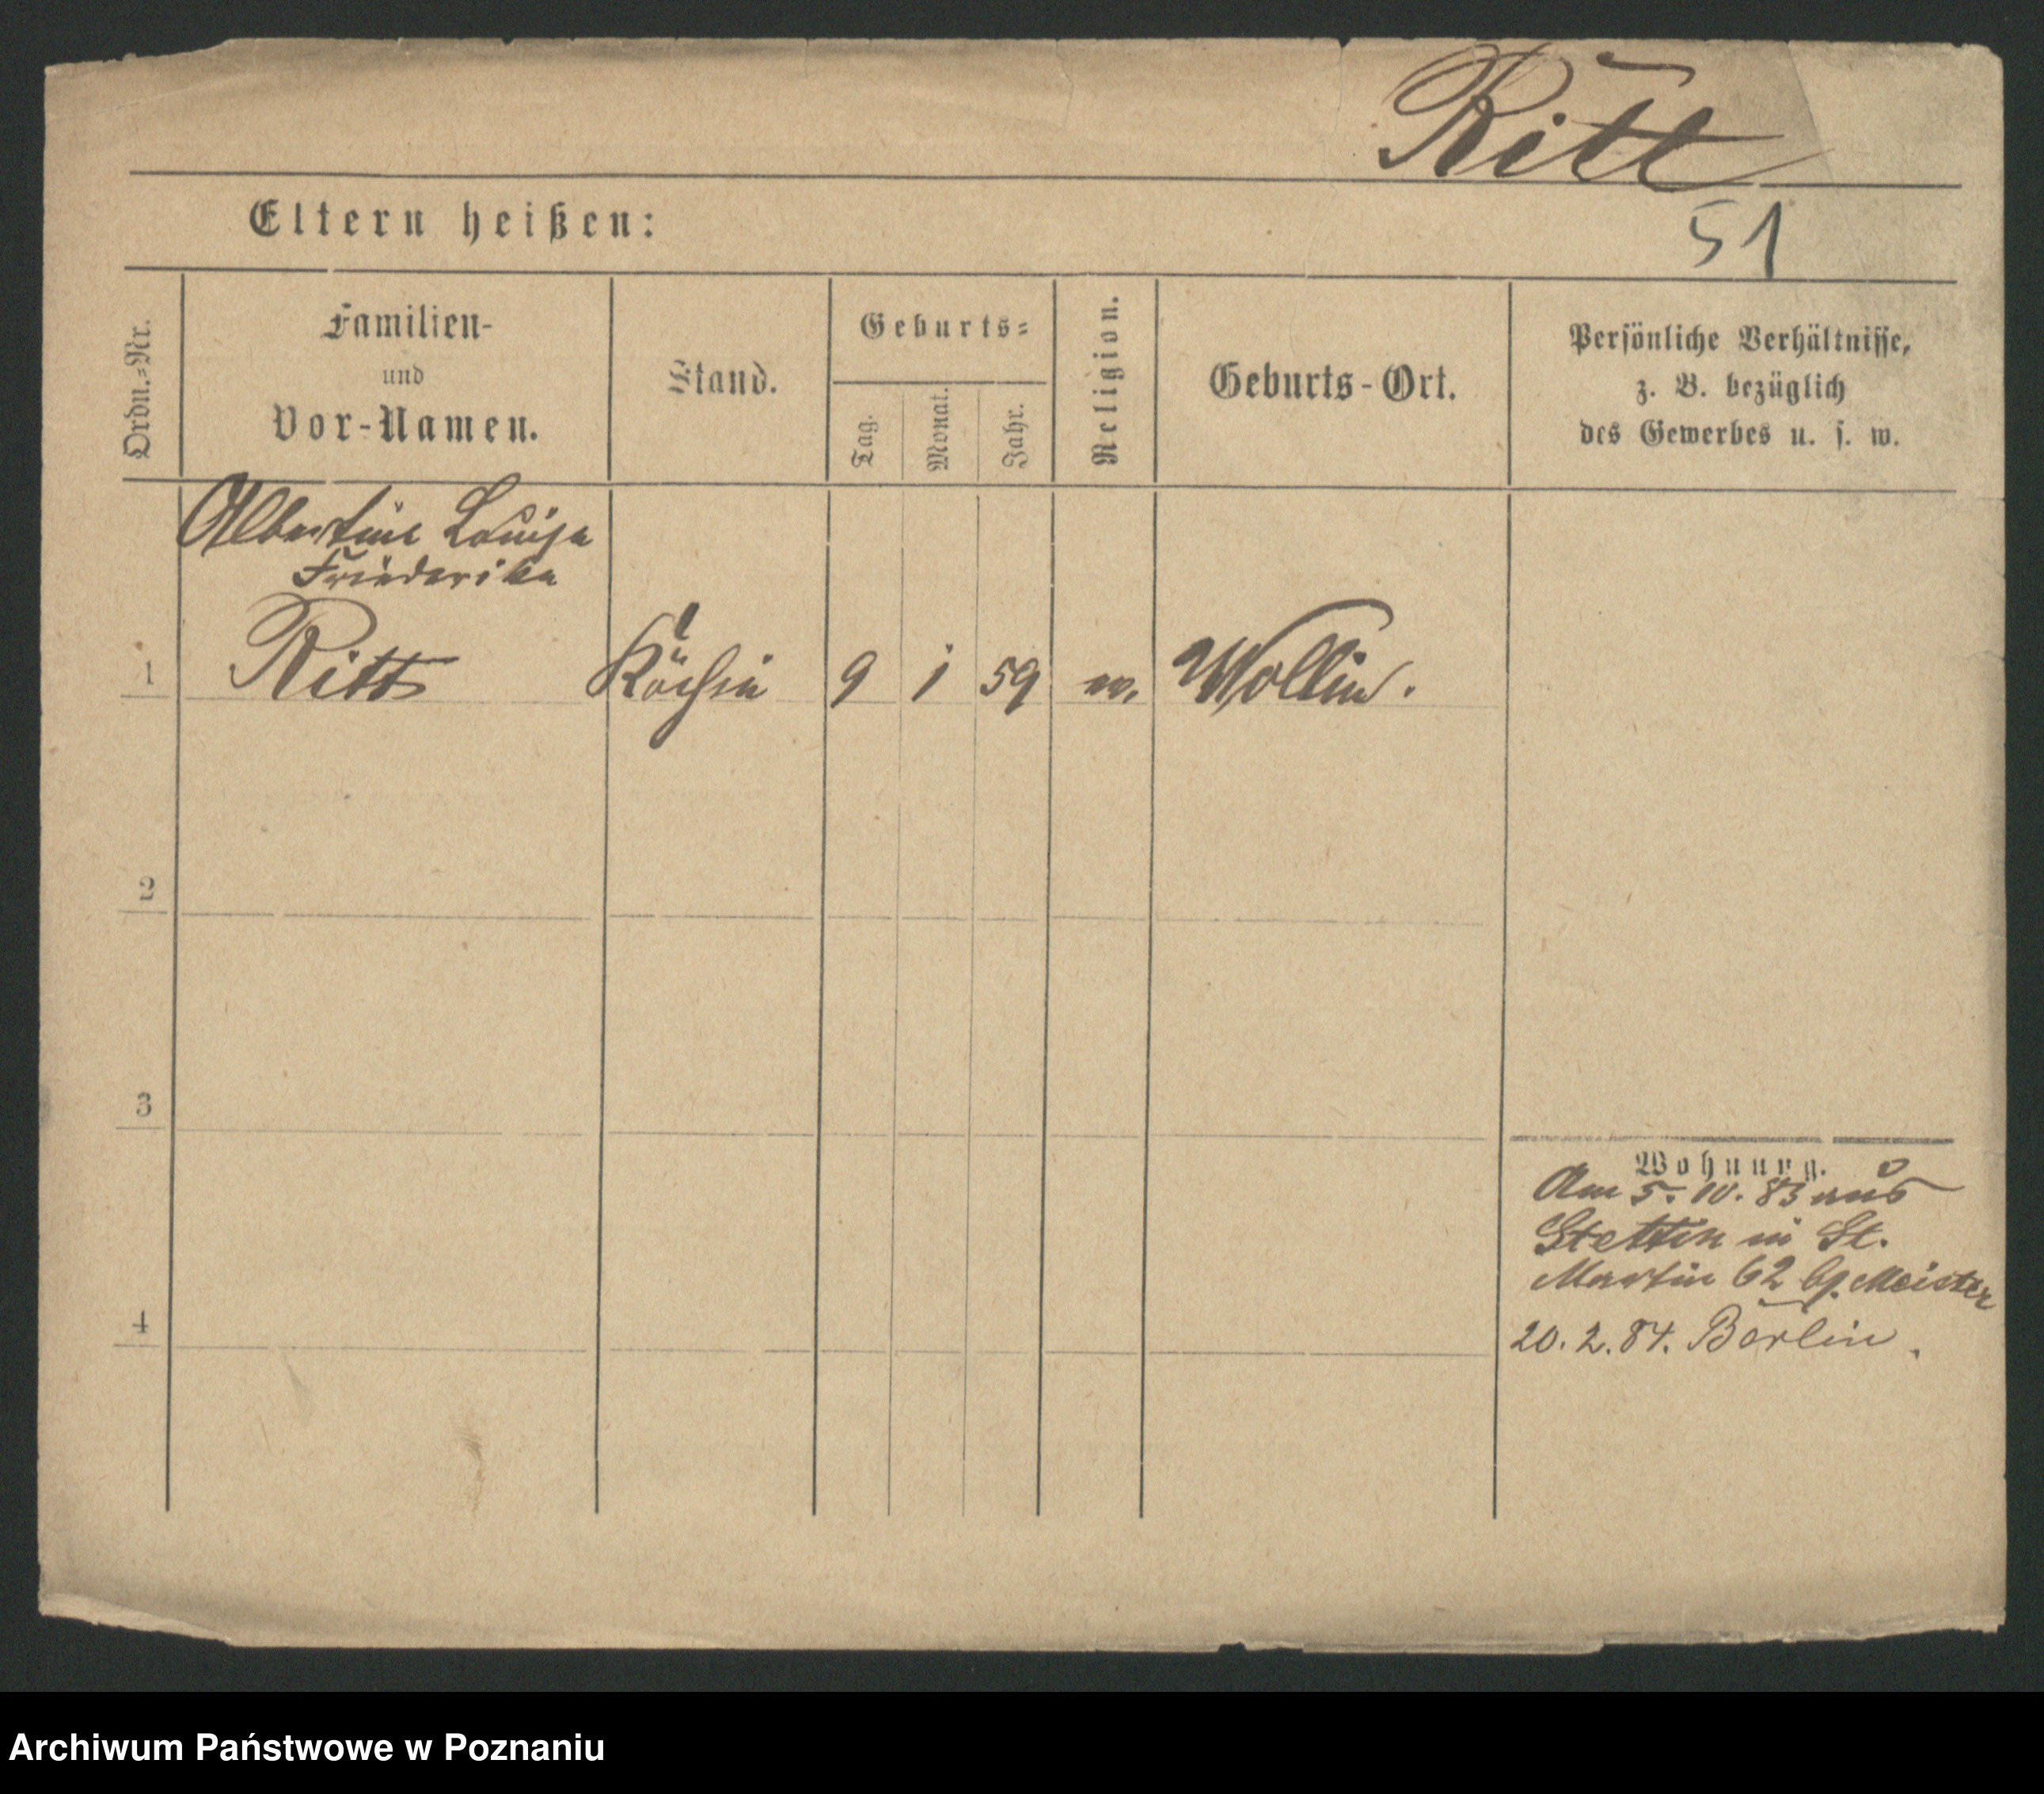 Ritt
51
Eltern heißen:
Ordn.-Nr.
Familien-
und
Vor-Namen.
Stand.
Geburts-
Tag.
Monat.
Jahr.
Religion.
Geburts-Ort.
Persönliche Verhältnisse,
z. B. bezüglich
des Gewerbes u. s. w.
Albertine Louise
Friederike
1 Ritt Köchin 9 1 59 Wollin.
2
3
4
Wohnung.
Am 5. 10. 83 aus
Stettin in St.
Martin 62 Meister
20. 2. 84. Berlin.
Archiwum Państwowe w Poznaniu